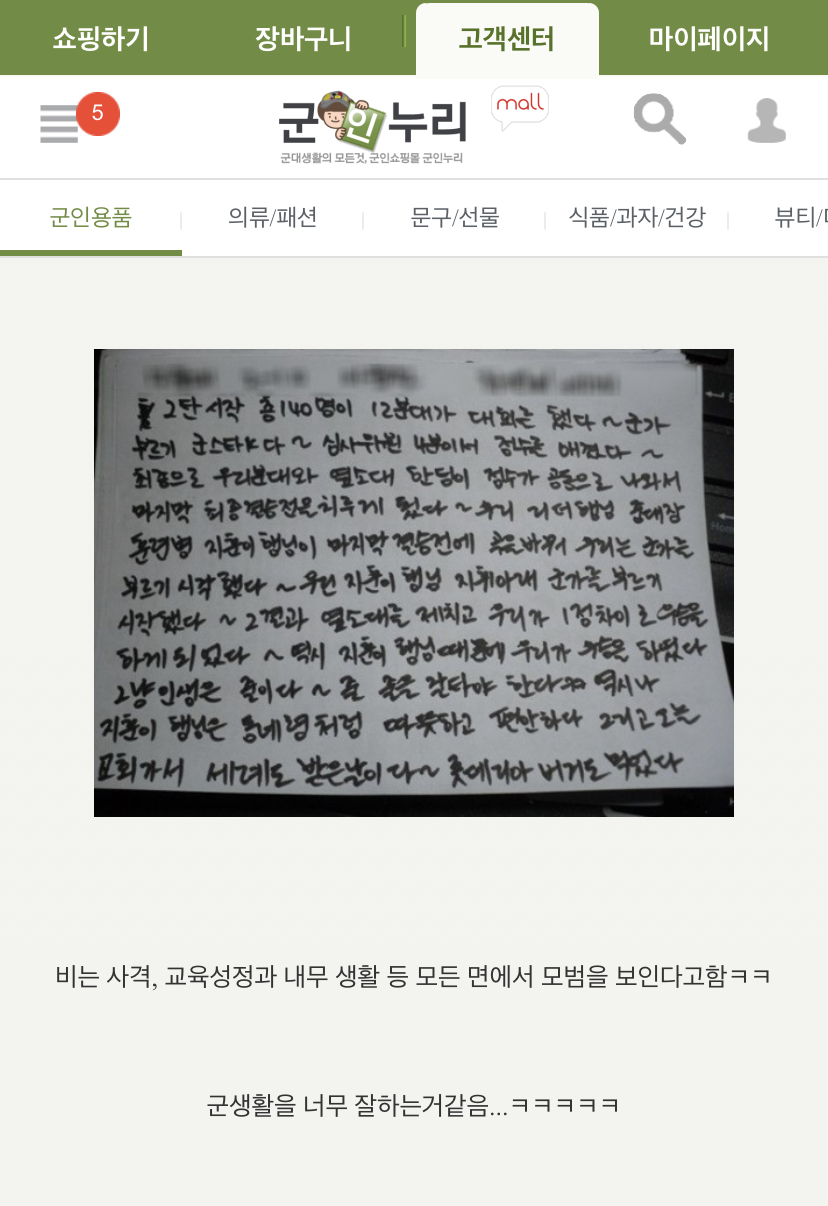 쇼핑하기 장바구니 고객센터 마이페이지
5
군인누리 mall
군대생활의 모든것, 군인쇼핑몰 군인누리
군인용품 의류/패션 문구/선물 식품/과자/건강 뷰티/
2탄 시작 총 140명이 12분대가 대회를 했다 ~ 군가
부르기 군스타K다 ~ 심사위원 4분이서 점수를 매겼다 ~
최종으로 우리분대와 열소대 한팀이 점수가 공동으로 나와서
마지막 최종결승전을 치루게 됬다 ~ 우리 리더 햄님 중대장
훈련병 지훈이햄님이 마지막 결승전에 바꿔 우리는 군가를
부르기 시작했다 ~ 우린 지훈이 햄님 지휘아래 군가를 부르기
시작했다 ~ 2결과 열소대를 제치고 우리가 1점차이로 우승을
하게 되었다 ~ 역시 지훈이 햄님때문에 우리가 우승을 하였다
그냥 인생은 줄이다 ~ 줄 줄을 잘타야 한다 역시나
지훈이 햄님은 동네형처럼 따뜻하고 편안하다 그리고 오늘
교회가서 세례도 받은날이다 ~ 롯데리아 버거도 먹었다
비는 사격, 교육성정과 내무 생활 등 모든 면에서 모범을 보인다고함ㅋㅋ
군생활을 너무 잘하는거같음...ㅋㅋㅋㅋㅋ